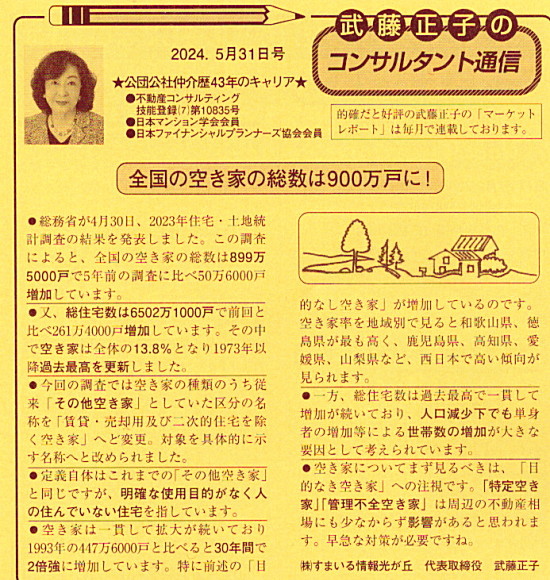 武藤正子の
コンサルタント通信
2024. 5月31日号
★公団公社仲介歴43年のキャリア★
●不動産コンサルティング
技能登録(7)第10835号
●日本マンション学会会員
●日本ファイナンシャルプランナーズ協会会員
的確だと好評の武藤正子の「マーケット
レポート」は毎月で連載しております。
全国の空き家の総数は900万戸に!
●総務省が4月30日、2023年住宅・土地統
計調査の結果を発表しました。この調査
によると、全国の空き家の総数は899万
5000戸で5年前の調査に比べ50万6000戸
増加しています。
●又、総住宅数は6502万1000戸で前回と
比べ261万4000戸増加しています。その中
で空き家は全体の13.8%となり1973年以
降過去最高を更新しました。
●今回の調査では空き家の種類のうち従
来「その他空き家」としていた区分の名
称を「賃貸・売却用及び二次的住宅を除
く空き家」へと変更。対象を具体的に示
す名称へと改められました。
●定義自体はこれまでの「その他空き家」
と同じですが、明確な使用目的がなく人
の住んでいない住宅を指しています。
●空き家は一貫して拡大が続いており
1993年の447万6000戸と比べると30年間で
2倍強に増加しています。特に前述の「目
的なし空き家」が増加しているのです。
空き家率を地域別で見ると和歌山県、徳
島県が最も高く、鹿児島県、高知県、愛
媛県、山梨県など、西日本で高い傾向が
見られます。
●一方、総住宅数は過去最高で一貫して
増加が続いており、人口減少下でも単身
者の増加等による世帯数の増加が大きな
要因として考えられています。
●空き家についてまず見るべきは、「目
的なき空き家」への注視です。「特定空き
家」「管理不全空き家」は周辺の不動産相
場にも少なからず影響があると思われま
す。早急な対策が必要ですね。
㈱すまいる情報光が丘 代表取締役 武藤正子